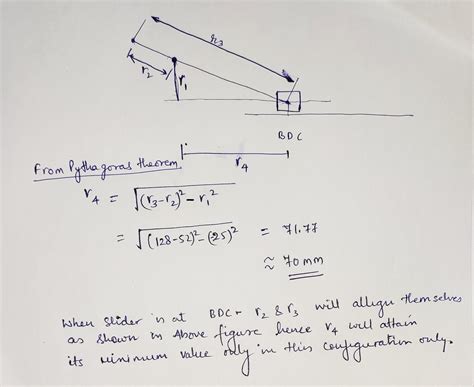 r3
r2
r1
BDC
From Pythagoras theorem
r4
r4 = √(r3-r2)² - r1²
= √(128-52)² - (25)² = 71.77
≈ 70 mm
When slider is at BDC - r2 & r3 will allign themselves
as shown in Above figure hence r4 will attain
its minimum value only in this configuration only.